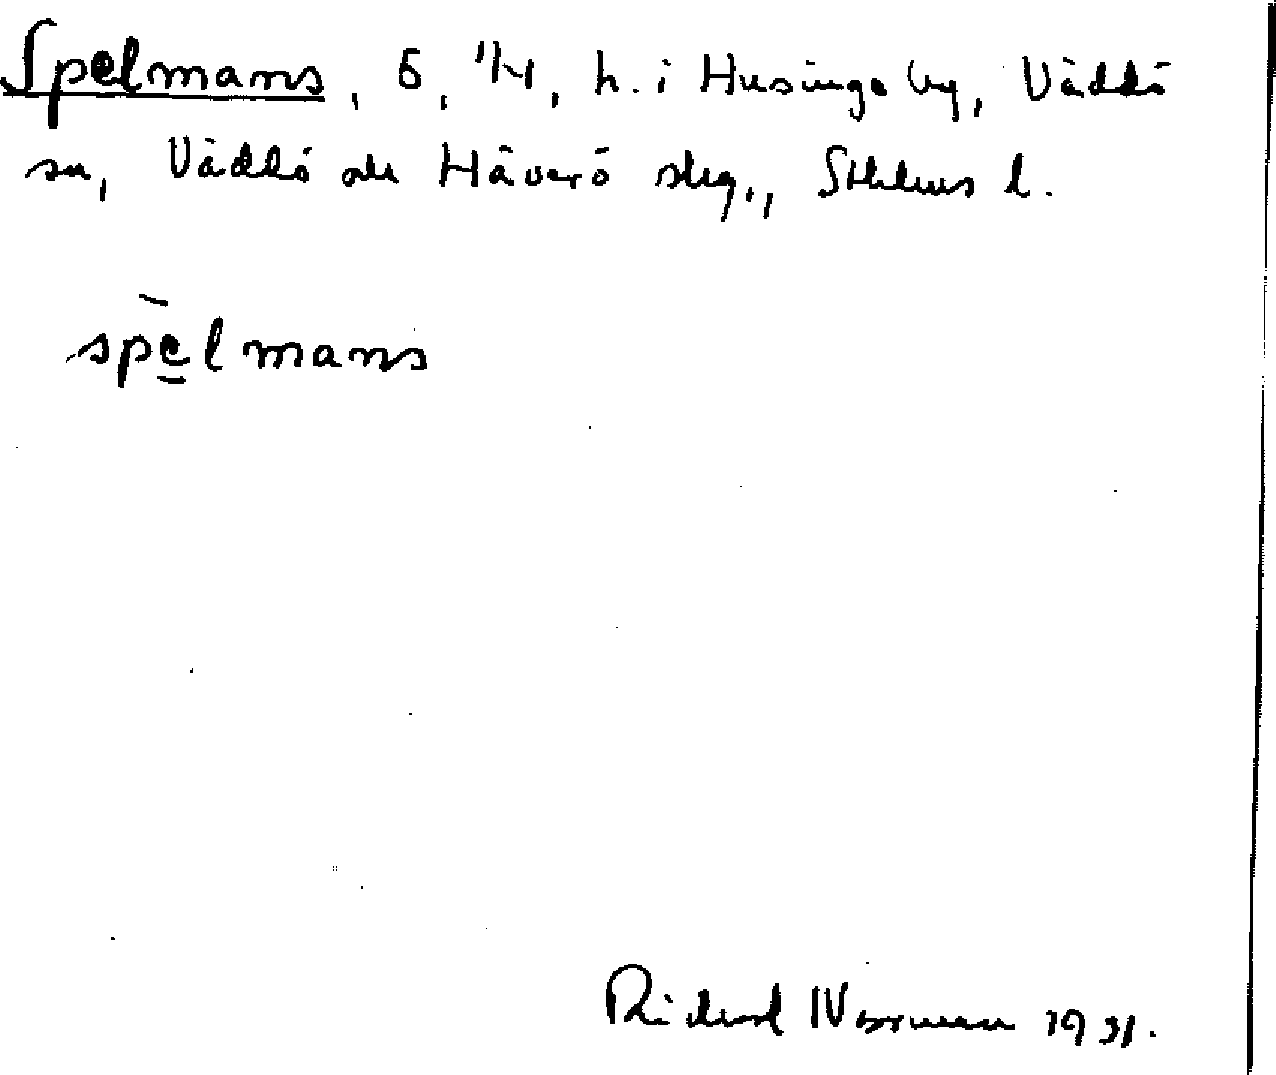 Spelmans, 6, 1/4, h. i Husinge by, Väddö
sn, Väddö och Häverö skg., Sthlms l.
spelmans
Richard Norrman 1931.